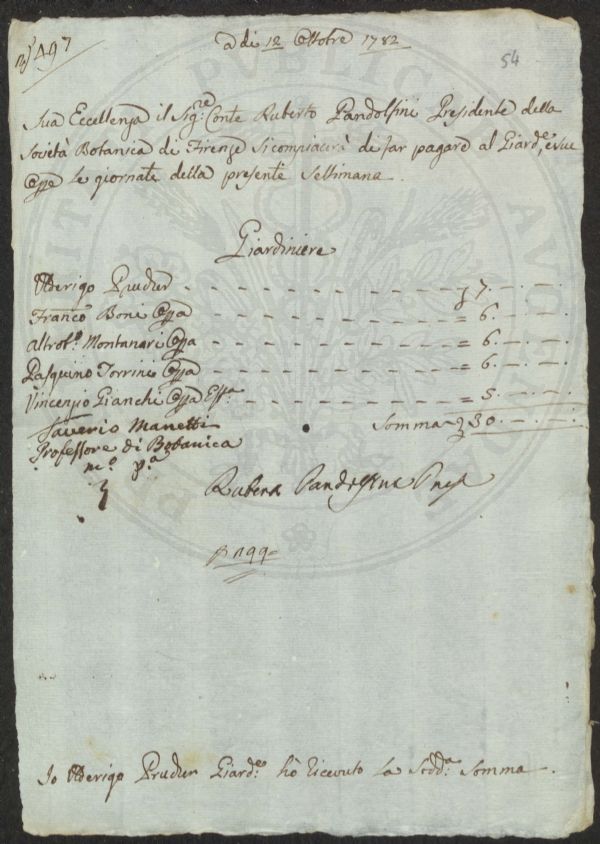 N. 497
a di 12 Ottobre 1782
54
Sua Eccellenza il Sig:re Conte Ruberto Pandolfini Presidente della
Società Botanica di Firenze Si compiacerà di far pagare al Giard:e, e sue
le giornate della presente Settimana.
Giardiniere
Ulderigo Prucker - - - - - - - - - - 7. - . -
Franco. Boni - - - - - - - - - - = 6. - . -
Montanari - - - - - - - - - = 6. - . -
Pasquino Torrini - - - - - - - - = 6. - . -
Vincenzio Bianchi - - - - - - - = 5. - . -
Saverio Manetti
Somma 30. - . -
Professore di Botanica
mo. pa.
Pandolfini
Io Ulderigo Prucker Giard:e hò ricevuto la Sodd:a Somma.